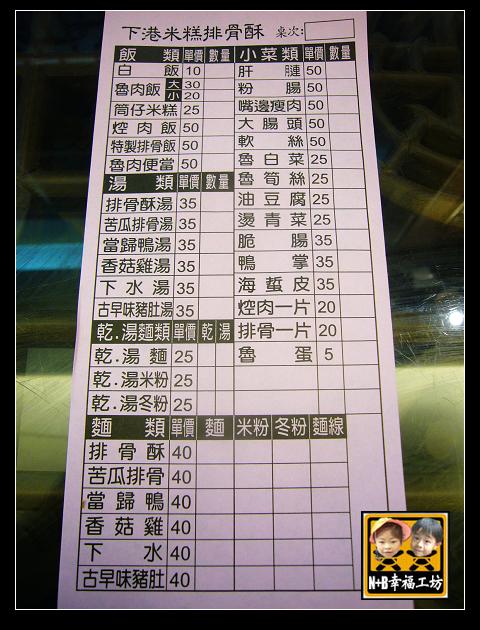 下港米糕排骨酥 桌次:
飯類 單價 數量
白飯 10
魯肉飯 大 30
小 20
筒仔米糕 25
焢肉飯 50
特製排骨飯 50
魯肉便當 50
湯類 單價 數量
排骨酥湯 35
苦瓜排骨湯 35
當歸鴨湯 35
香菇雞湯 35
下水湯 35
古早味豬肚湯 35
乾.湯麵類 單價 乾 湯
乾.湯麵 25
乾.湯米粉 25
乾.湯冬粉 25
小菜類 單價 數量
肝腱 50
粉腸 50
嘴邊瘦肉 50
大腸頭 50
軟絲 50
魯白菜 25
魯筍絲 25
油豆腐 25
燙青菜 25
脆腸 35
鴨掌 35
海蜇皮 35
焢肉一片 20
排骨一片 20
魯蛋 5
麵類 單價 麵 米粉 冬粉 麵線
排骨酥 40
苦瓜排骨 40
當歸鴨 40
香菇雞 40
下水 40
古早味豬肚 40
N+B幸福工坊